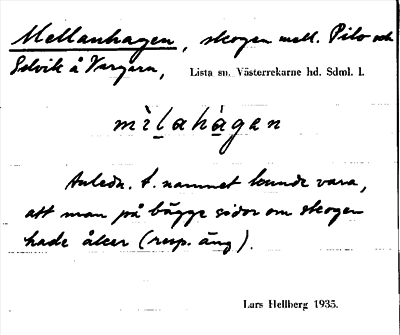 Mellanhagen, skogen mell. Pilo och
Selvik å Vargarn,
Lista sn. Västerrekarne hd. Sdml. l.
mìlahàgan
Anledn. t. namnet kunde vara,
att man på bägge sidor om skogen
hade åker (resp. äng).
Lars Hellberg 1935.